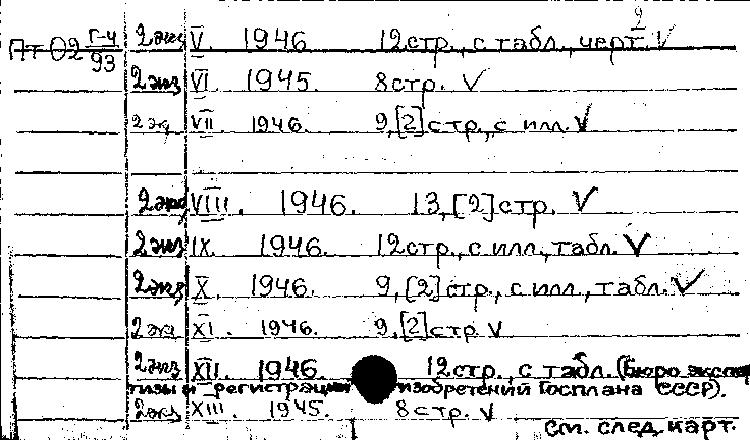 2
Пт О2 Г-4/93 2 экз V. 1946 12 стр., с табл., черт. V
2 экз VI. 1945. 8 стр. V
2 экз VII. 1946. 9, [2] стр., с илл. V
2 экз VIII. 1946. 13, [2] стр. V
2 экз IX. 1946. 12 стр., с илл., табл. V
2 экз X. 1946. 9, [2] стр., с илл., табл. V
2 экз XI. 1946. 9, [2] стр V
2 экз XII. 1946. 12 стр., с табл. (Бюро экспер
тизы и регистрации изобретений Госплана СССР).
2 экз XIII. 1945. 8 стр. V
См. след. карт.